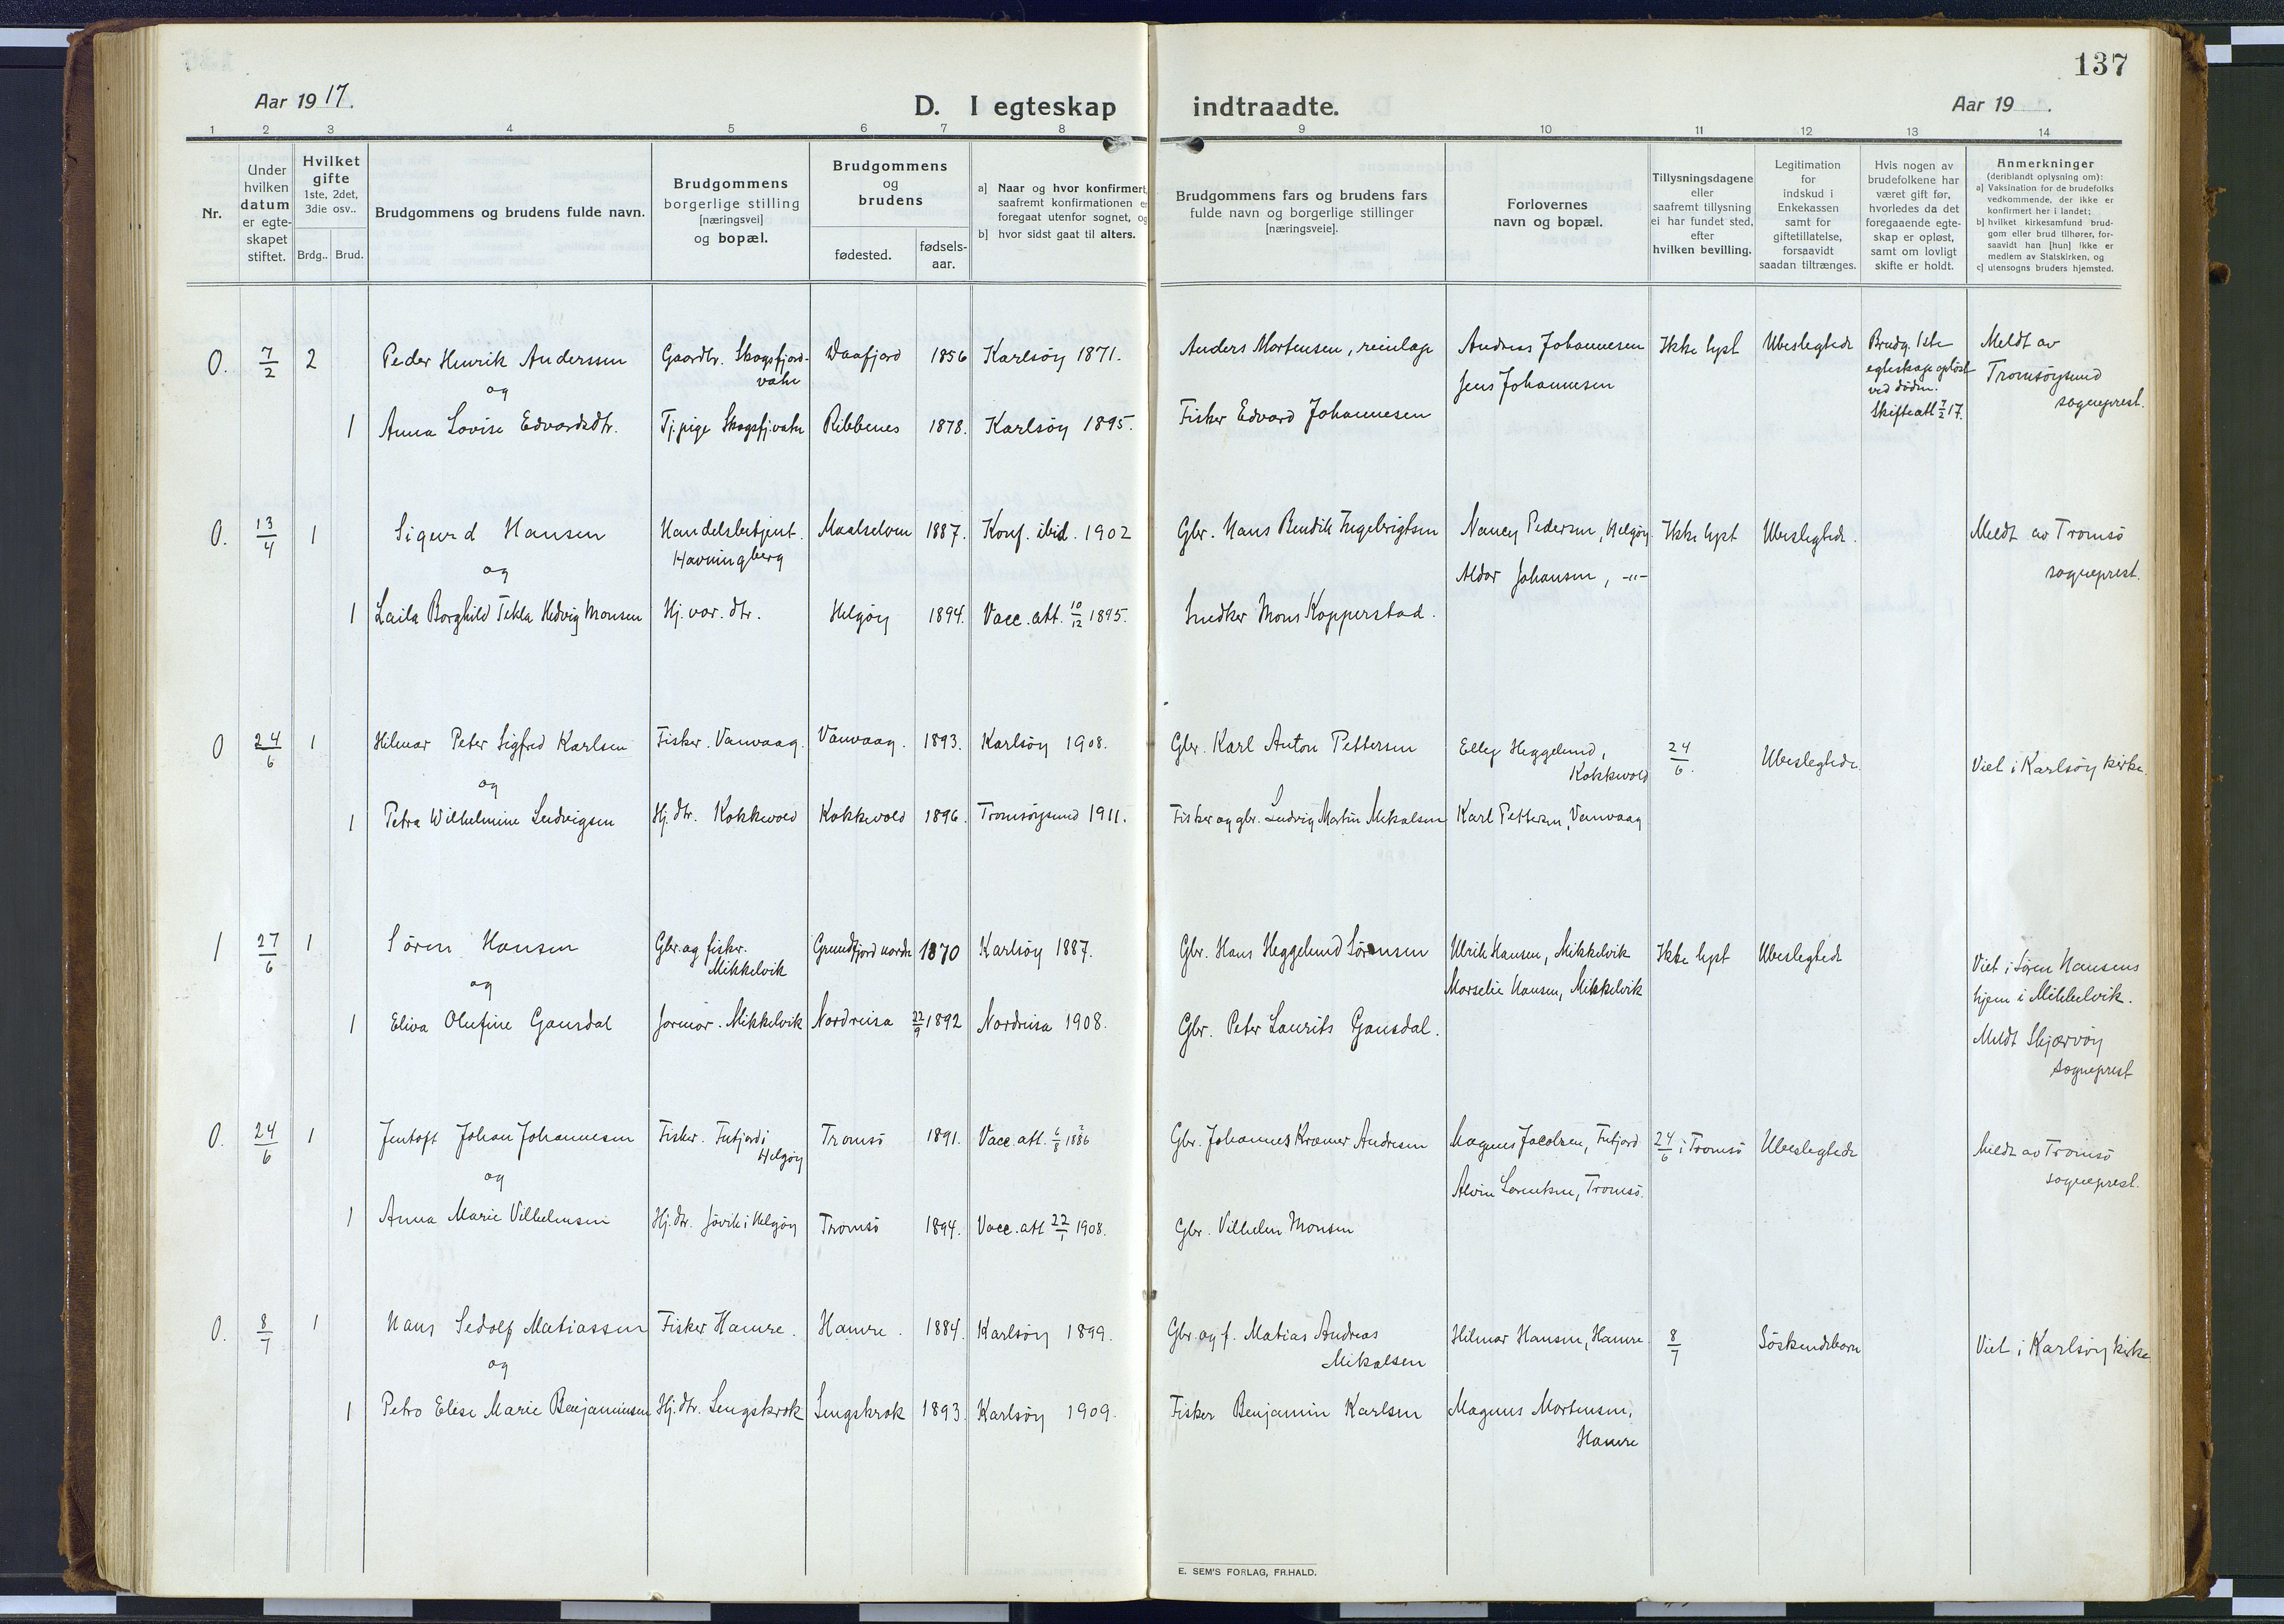 137
Aar 1917.
D. I egteskap indtraadte.
Aar 19 .
1 2 3 4 5 6 7 8 9 10 11 12 13 14
Nr.
Under
hvilken
datum
er egte-
skapet
stiftet.
Hvilket
gifte
1ste, 2det,
3die osv..
Brdg.. Brud.
Brudgommens og brudens fulde navn.
Brudgommens
borgerlige stilling
[næringsvei]
og bopæl.
Brudgommens
og
brudens
fødested.
fødsels-
aar.
a] Naar og hvor konfirmert,
saafremt konfirmationen er
foregaat utenfor sognet, og
b] hvor sidst gaat til alters.
Brudgommens fars og brudens fars
fulde navn og borgerlige stillinger
[næringsveie].
Forlovernes
navn og bopæl.
Tillysningsdagene
eller
saafremt tillysning
ei har fundet sted,
efter
hvilken bevilling.
Legitimation
for
indskud i
Enkekassen
samt for
giftetillatelse,
forsaavidt
saadan tiltrænges.
Hvis nogen av
brudefolkene har
været gift før,
hvorledes da det
foregaaende egte-
skap er opløst,
samt om lovligt
skifte er holdt.
Anmerkninger
(deriblandt oplysning om):
a] Vaksination for de brudefolks
vedkommende, der ikke er
konfirmert her i landet;
b] hvilket kirkesamfund brud-
gom eller brud tilhører, for-
saavidt han [hun] ikke er
medlem av Statskirken, og
c] utensogns bruders hjemsted.
0. 7/2 2 Peder Henrik Anderssen Gaardbr. Skogsfjord-
vatn Daafjord 1856 Karlsøy 1871. Anders Mortensen, reinlap Andreas Johannesen
Jens Johannesen Ikke lyst Ubeslegtede Brudg. 1ste
egteskap opløst
ved døden.
Skifteatt 7/2 17. Meldt av
Tromsøysund
sogneprest.
og
1 Anna Lovise Edvardsdtr. Tj.pige Skogsfj.vatn Ribbenes 1878. Karlsøy 1895. Fisker Edvard Johannesen
0. 13/4 1 Sigurd Hansen Handelsbetjent.
Havningberg Maalselven 1887. Konf. ibid. 1902 Gbr. Hans Bendik Ingebrigtsen Nancy Pedersen, Helgøy
Aldor Johansen, -"- Ikke lyst Ubeslegtede. Meldt av Tromsø
sogneprest.
og
1 Laila Borghild Tekla Hedvig Monsen Hj.vær. dtr. Helgøy 1894. Vacc. att. 10/12 1895. Snedker Mons Kopperstad.
0 24/6 1 Hilmar Peter Sigfred Karlsen Fisker. Vanvaag. Vanvaag. 1893. Karlsøy 1908. Gbr. Karl Anton Pettersen Elleg Heggelund,
Kokkvold 24/6. Ubeslegtede. Viet i Karlsøy kirke.
og
1 Petra Wilhelmine Ludvigsen Hj. dtr. Kokkvold Kokkvold 1896. Tromsøysund 1911. Fisker og gbr. Ludvig Martin Mikalsen Karl Pettersen, Vanvaag
1 27/6 1 Søren Hansen Gbr. og fisker.
Mikkelvik Grundfjord nordre 1870 Karlsøy 1887. Gbr. Hans Heggelund Sørensen Ulrik Hansen, Mikkelvik
Marselie Hansen, Mikkelvik Ikke lyst Ubeslegtede Viet i Søren Hansens
hjem i Mikkelvik.
Meldt Skjærvøy
sogneprest
og
1 Eliva Olufine Gansdal Jormor. Mikkelvik Nordreisa 22/9 1892 Nordreisa 1908. Gbr. Peter Laurits Gansdal.
0. 24/6 1 Jentoft Johan Johannesen Fisker. Futfjord i
Helgøy Tromsø 1891. Vacc. att. 6/8 1886 Gbr. Johannes Kræmer Andresen Magnus Jacobsen, Futfjord
Alvin Lorentsen, Tromsø. 24/6 i Tromsø Ubeslegtede Meldt av Tromsø
sogneprest.
og
1 Anna Marie Vilhelmsen Hj.dtr. Jøvik i Helgøy Tromsø 1894. Vacc. att 22/1 1908. Gbr. Vilhelm Monsen
0. 8/7 1 Hans Sedolf Matiassen Fisker Hamre. Hamre. 1884. Karlsøy 1899. Gbr. og f. Matias Andreas
Mikalsen Hilmar Hansen, Hamre 8/7 Søskendebarn Viet i Karlsøy kirke
og
1 Petra Elise Marie Benjaminsen Hj.dtr. Lengskrok Lengskrok 1893. Karlsøy 1909. Fisker Benjamin Karlsen Magnus Mortensen,
Hamre
E. SEM'S FORLAG, FR.HALD.